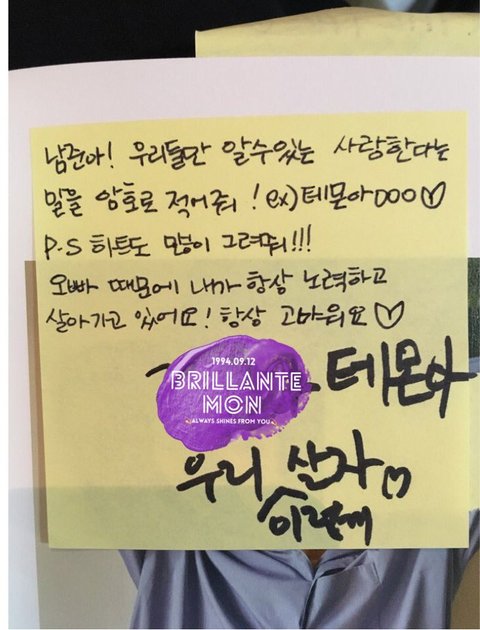 남준아! 우리들만 알수있는 사랑한다는
말을 암호로 적어줘! ex)테몬아ooo♡
P.S 하트도 많이 그려줘!!!
오빠 때문에 내가 항상 노력하고
살아가고 있어요! 항상 고마워요♡
테몬아
1994.09.12
BRILLANTE
MON
ALWAYS SHINES FROM YOU
우리 살자♡
이렇게